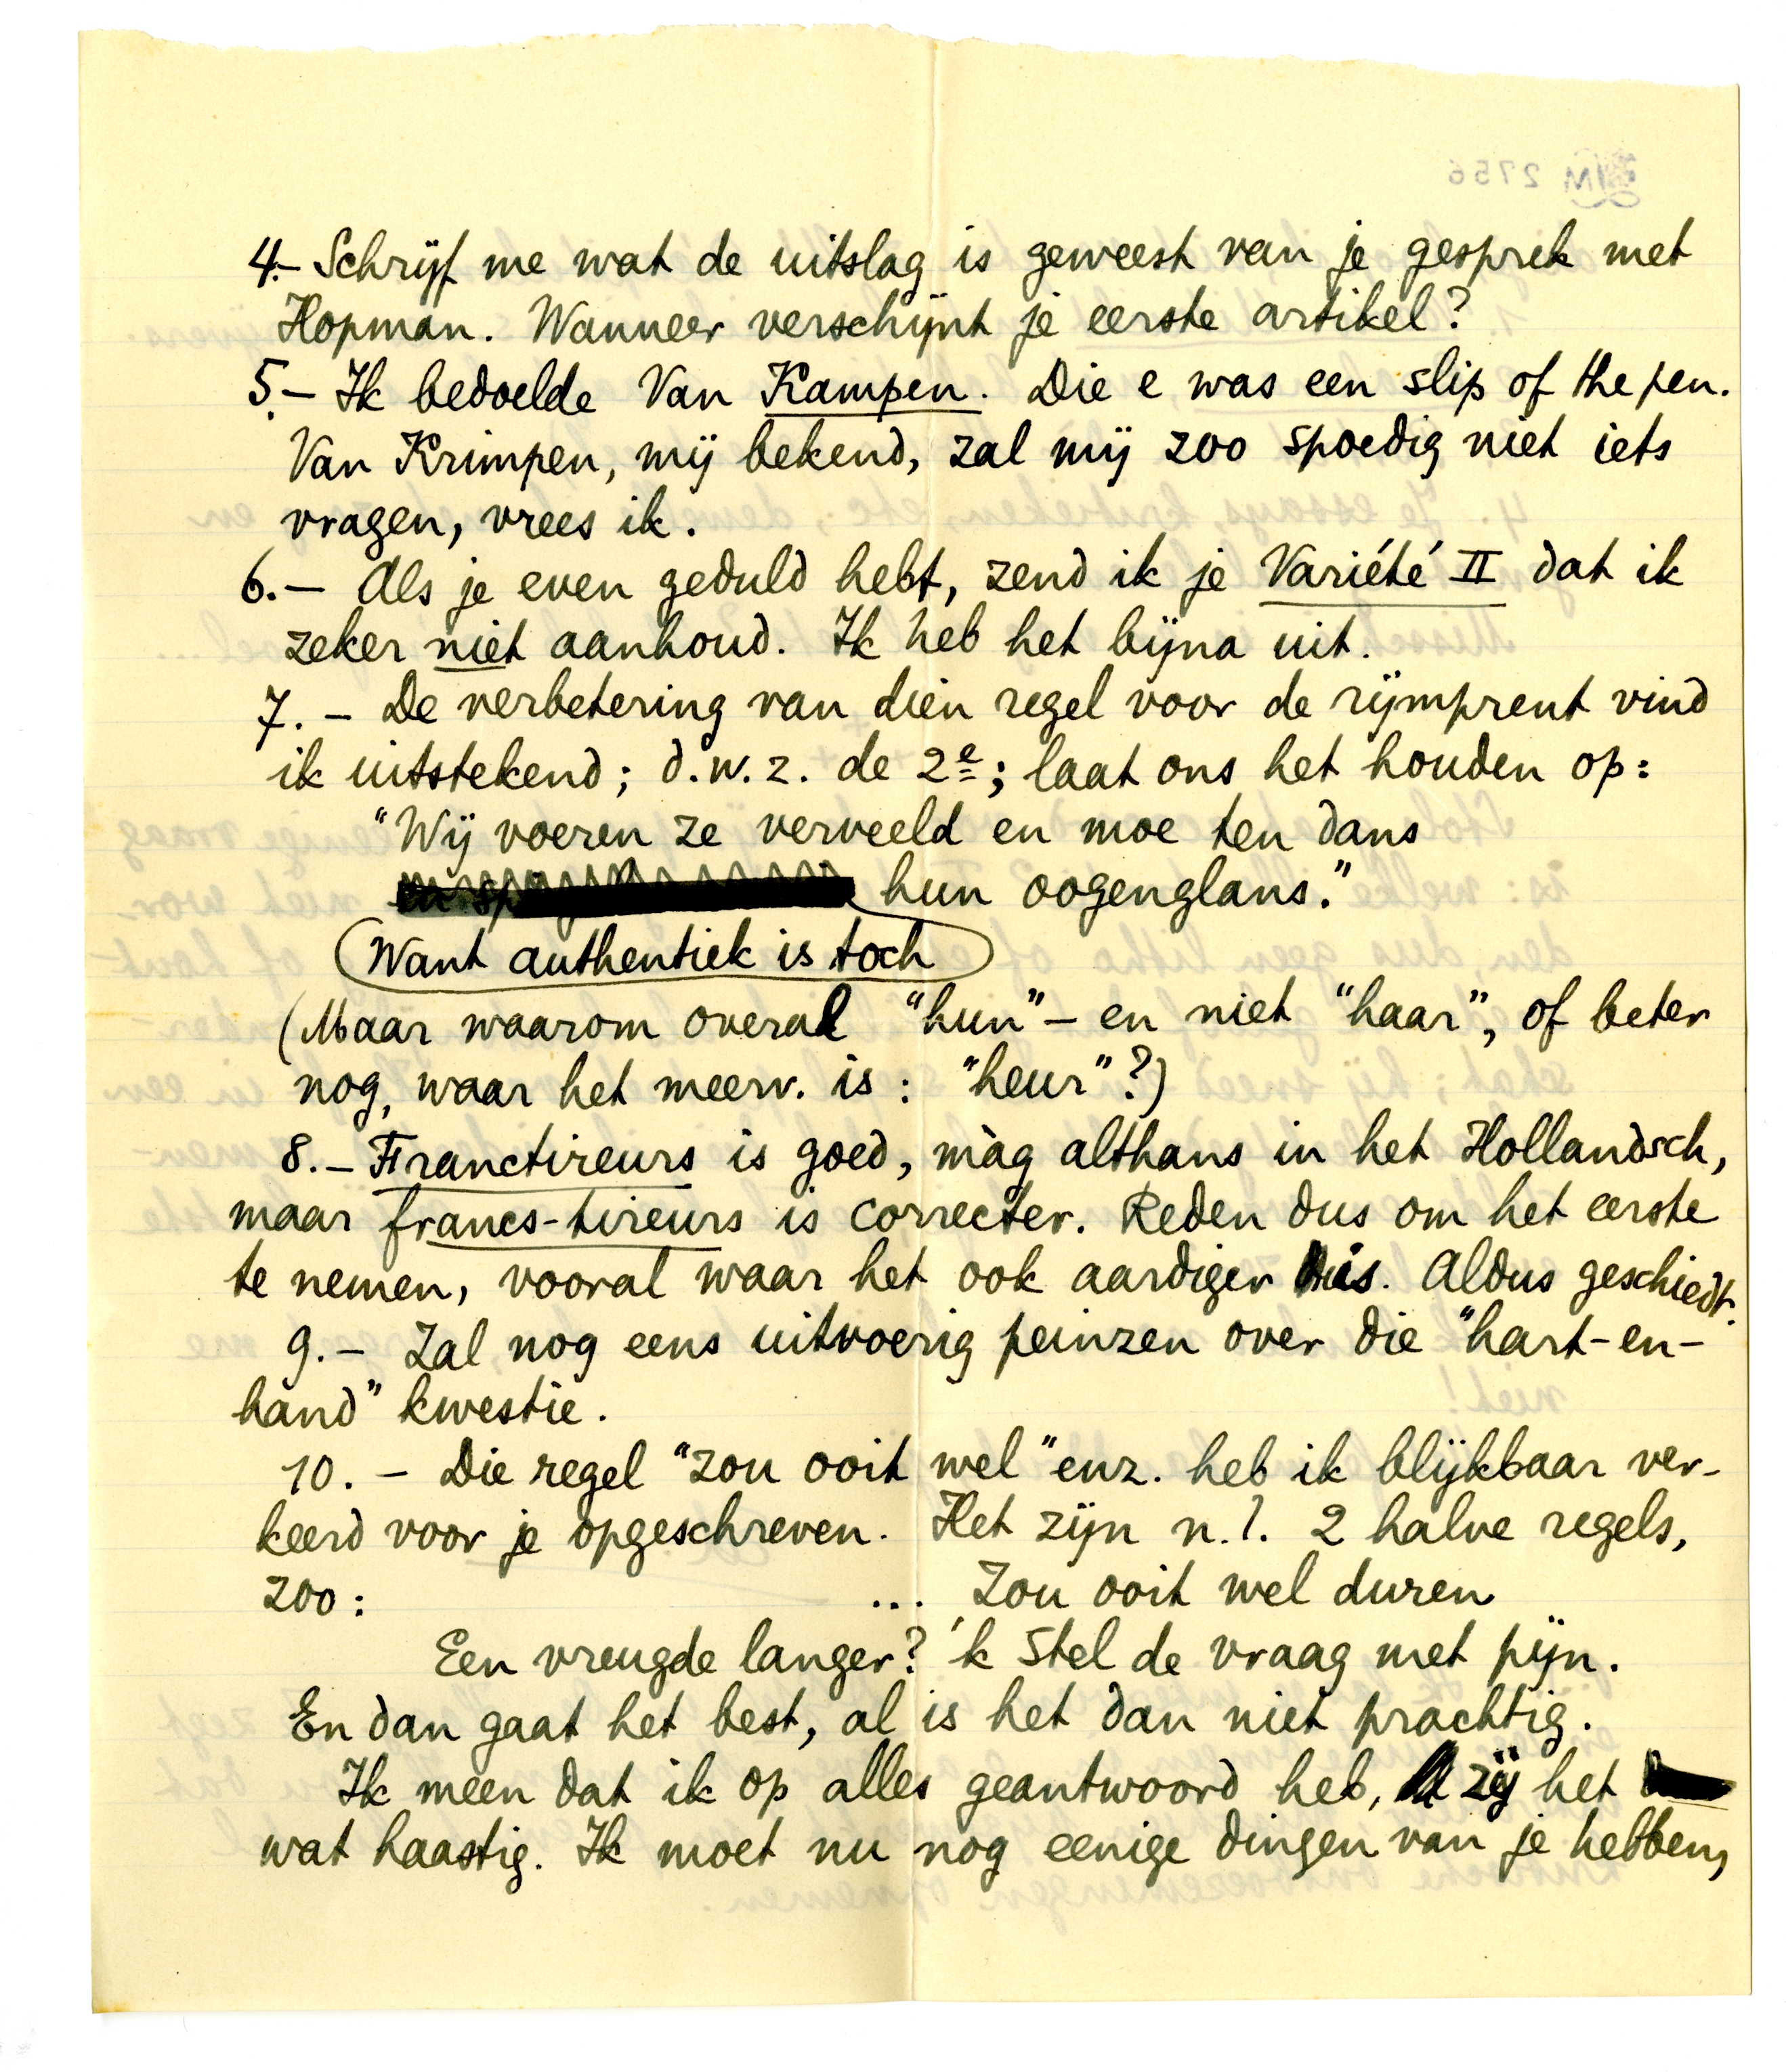 4.- Schrijf me wat de uitslag is geweest van je gesprek met
Hopman. Wanneer verschijnt je eerste artikel?
5.- Ik bedoelde Van Kampen. Die e was een slip of the pen.
Van Krimpen, mij bekend, zal mij zoo spoedig niet iets
vragen, vrees ik.
6.- Als je even geduld hebt, zend ik je Variété II dat ik
zeker niet aanhoud. Ik heb het bijna uit.
7.- De verbetering van dien regel voor de rijmprent vind
ik uitstekend; d.w.z. de 2e; laat ons het houden op:
"Wij voeren ze verveeld en moe ten dans
hun oogenglans."
Want authentiek is toch
(Maar waarom overal "hun" - en niet "haar", of beter
nog, waar het meerv. is: "heur"?)
8.- Franctireurs is goed, màg althans in het Hollandsch,
maar francs-tireurs is correcter. Reden dus om het eerste
te nemen, vooral waar het ook aardiger is. Aldus geschiedt.
9.- Zal nog eens uitvoerig peinzen over die "hart-en-
hand" kwestie.
10.- Die regel "zou ooit wel" enz. heb ik blijkbaar ver-
keerd voor je opgeschreven. Het zijn n.l. 2 halve regels,
zoo: ... Zou ooit wel duren
Een vreugde langer? 'k Stel de vraag met pijn.
En dan gaat het best, al is het dan niet prachtig.
Ik meen dat ik op alles geantwoord heb, zij het
wat haastig. Ik moet nu nog eenige dingen van je hebben,